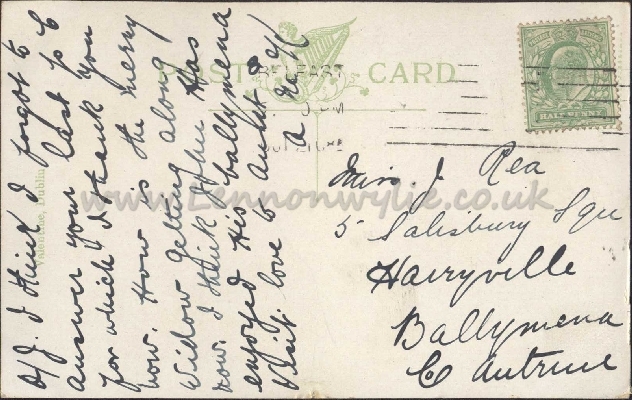 POST CARD
BELFAST
HALFPENNY
D/J. I think I forgot to
answer your last p c
for which I thank you
now. How is the merry
Widow getting along
now. I think John Has
enjoyed His ballymena
Visit. love to Auntie &
Miss J. Rea
5 Salisbury Sqre
Harryville
Ballymena
Co Antrim
Valentine, Dublin
www.Lennonwylie.co.uk